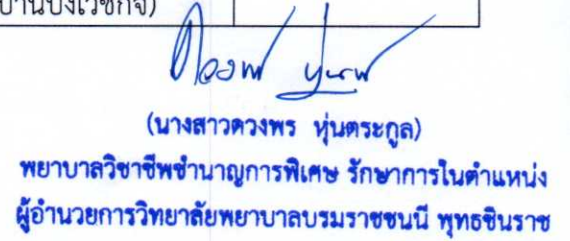 (นางสาวดวงพร หุ่นตระกูล)
พยาบาลวิชาชีพชำนาญการพิเศษ รักษาการในตำแหน่ง
ผู้อำนวยการวิทยาลัยพยาบาลบรมราชชนนี พุทธชินราช